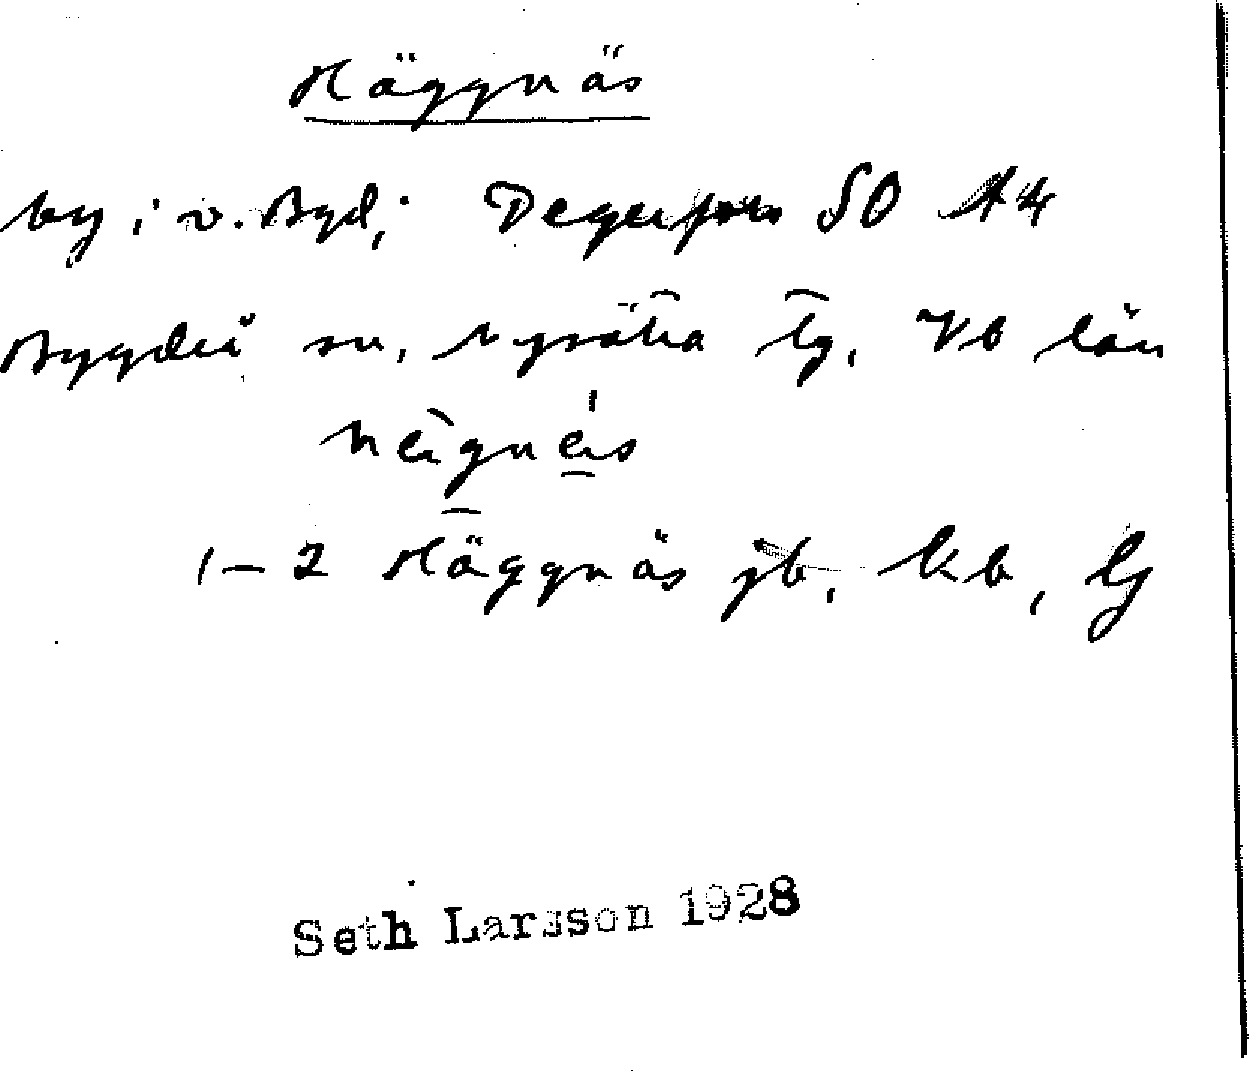 Häggnäs
by i v. Bygd; Degerfors SO
Bygdeå sn, Nysätra tg. Vb län
1–2 Häggnäs jb, kb, lj
Seth Larsson 1928